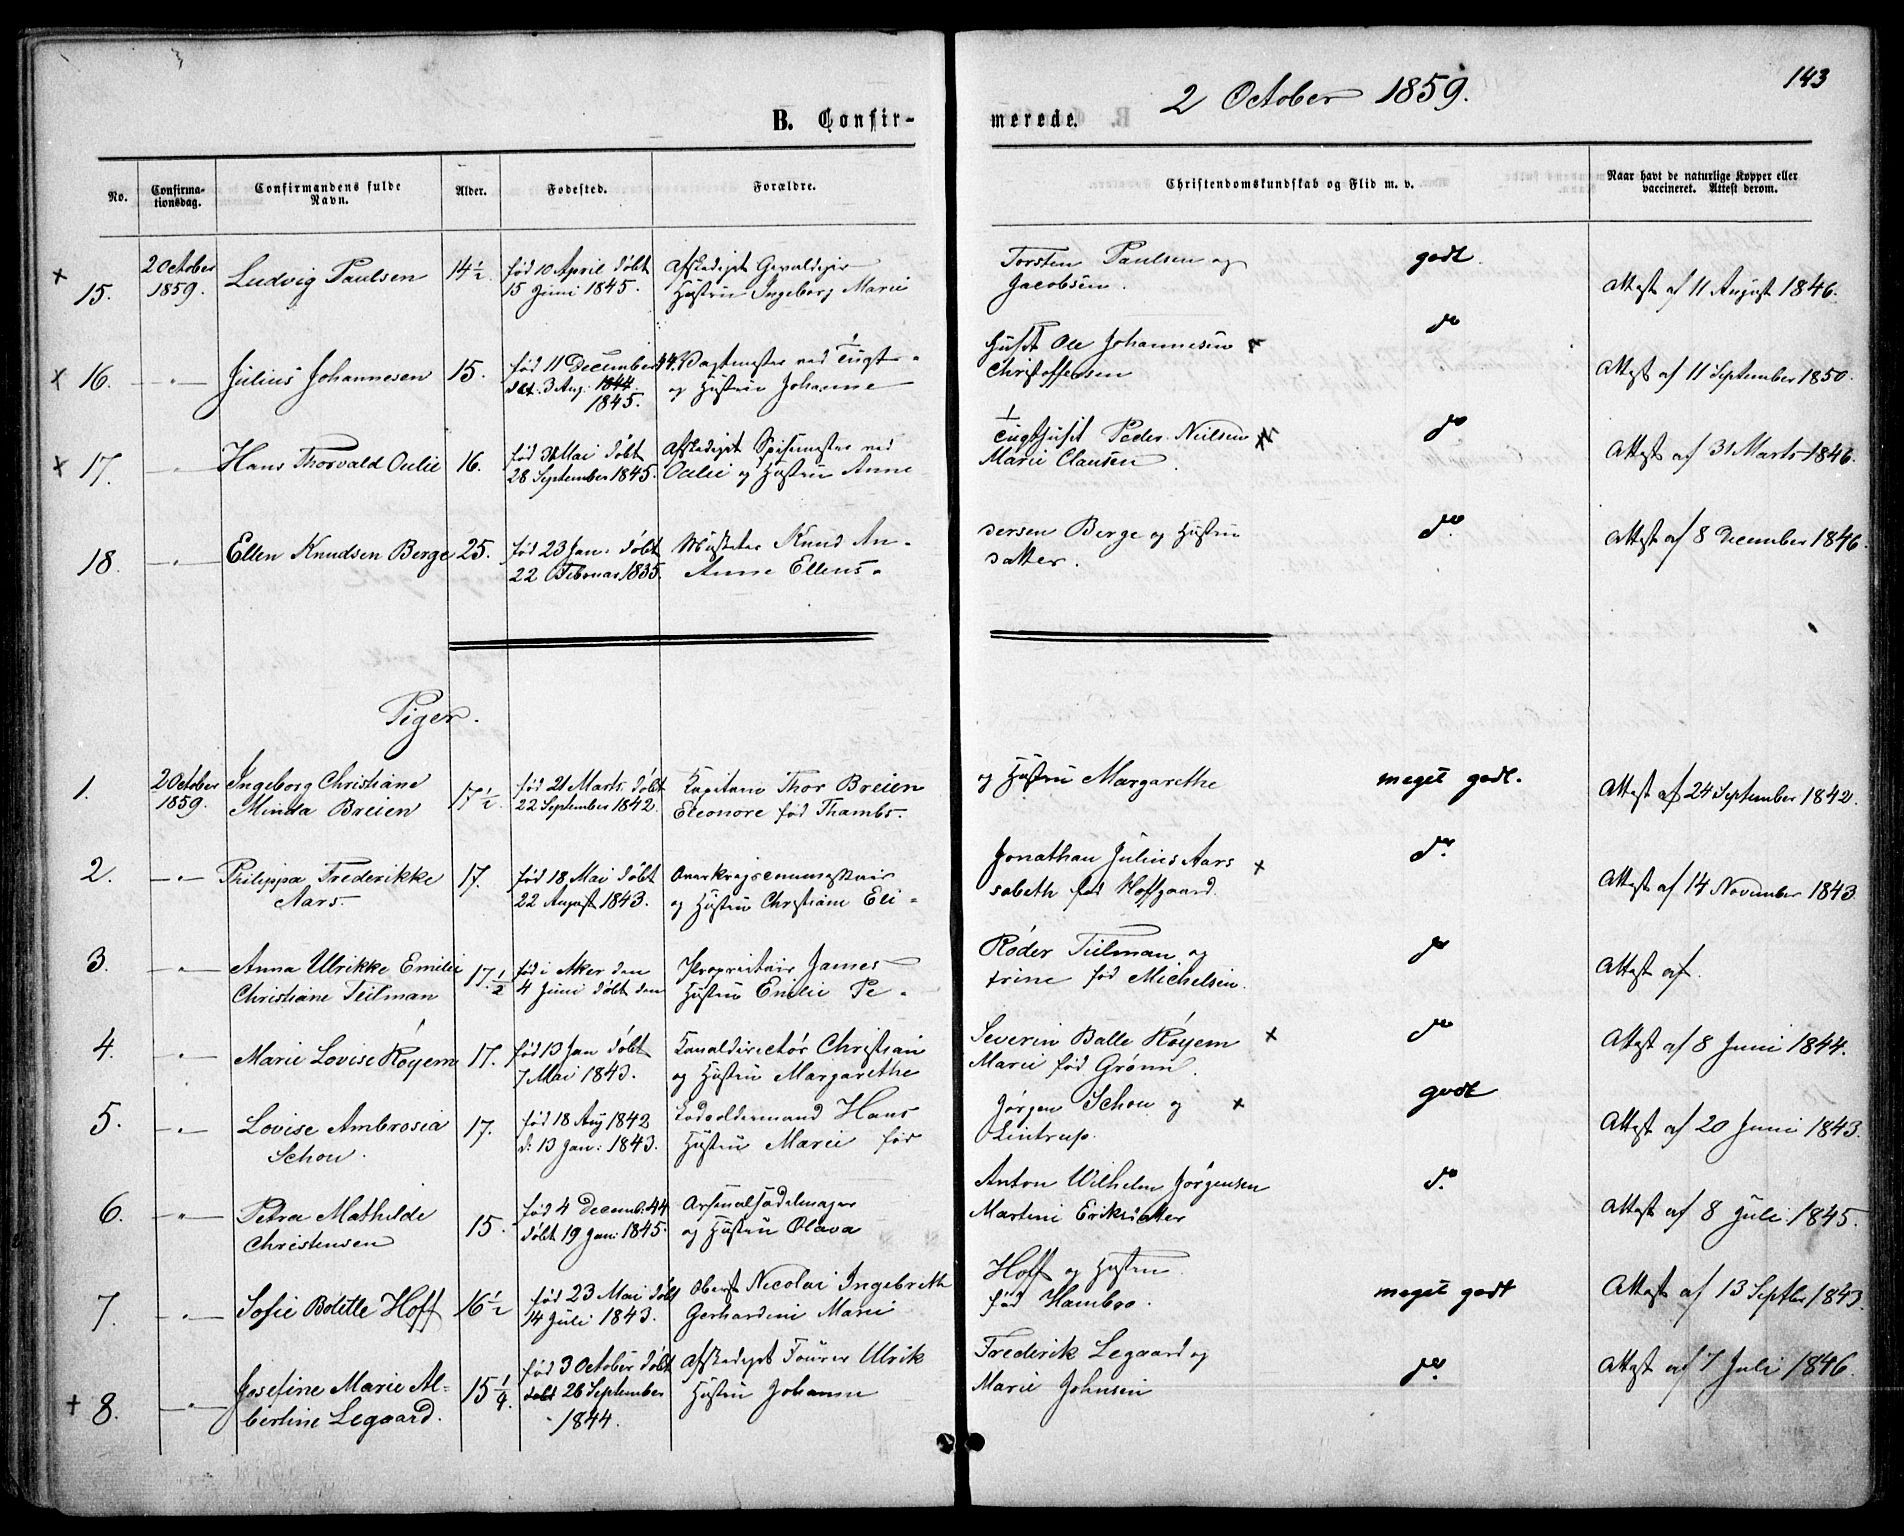 143
2 October 1859.
B. Confir-
merede.
No.
Confirma-
tionsdag.
Confirmandens fulde
Navn.
Alder.
Fødested.
Forældre.
Christendomskundskab og Flid m. v.
Naar havt de naturlige Kopper eller
vaccineret. Attest derom.
x 15. 2 October 1859. Ludvig Paulsen 14 1/2. født 10 April døbt 15 Juni 1845. Afskediget Gevaldiger Torsten Paulsen og Hustru Ingeborg Marie Jacobsen. godt. Attest af 11 August 1846.
x 16. —"— Julius Johannesen 15. født 11 December 44. døbt. 3 Aug. 1844. 1845. Vagtmester ved Tugt- huset Ole Johannesen x og Hustru Johanne Christoffersen do Attest af 11 September 1850.
x 17. —"— Hans Thorvald Oulie 16. født Mai døbt 28 September 1845. Afskediget Spisemester ved Tugthuset Peder Nielsen x Oulie og Hustru Anne Marie Clausen. do Attest af 31 Marts 1846.
18. —"— Ellen Knudsen Berge 25. født 23 Jan: døbt 22 Februar 1835. Musketer Knud An- dersen Berge og Hustru Anne Ellens- datter. do. Attest af 8 December 1846.
Piger.
1. 2 October 1859. Ingeborg Christiane Minda Breien 17 1/2. født 21 Marts døbt 22 September 1842. Kapitain Thor Breien og Hustru Margarethe Eleonore fød Thambs. meget godt. Attest af 24 September 1842.
2. —"— Philippa Frederikke Aars. 17. født 18 Mai døbt 22 August 1843. Overkrigscommissair Jonathan Julius Aars x og Hustru Christiane Eli- sabeth fød Hoffgaard. do. Attest af 14 November 1843.
3. —"— Anna Ulrikke Emilie Christiane Teilman 17. 1/2 født i Aker den 4 Juni døbt den Proprietair James Røder Teilman og Hustru Emilie Pe- trine fød Michelsen. do Attest af.
4. —"— Marie Lovise Røyem 17. født 13 Jan døbt 7 Mai 1843. Kanaldirectør Christian Severin Balle Røyem x og Hustru Margarethe Marie fød Grønn. do Attest af 8 Juni 1844.
5. —"— Lovise Ambrosia Schou. 17. født 18 Aug 1842 d: 13 Jan: 1843. Lodsoldermand Hans Jørgen Schou og x Hustru Marie fød Lintrup. godt Attest af 20 Juni 1843.
6. —"— Petra Mathilde Christensen 15. født 4 Decemb: 44 døbt 19 Jan: 1845. Arsenalsadelmager Anton Wilhelm Jørgensen og Hustru Olava Martine Eriksdatter do. Attest af 8 Juli 1845.
7. —"— Sofie Bolette Hoff 16 1/2 født 23 Mai døbt 14 Juli 1843. Oberst Nicolai Ingebreth Hoff og Hustru Gerhardine Marie fød Hambro. meget godt Attest af 13 Septbr 1843.
+ 8. —"— Josefine Marie Al- bertine Legaard. 15 1/4. født 3 October døbt døbt 26 September 1844. Afskediget Fourer Ulrik Frederik Legaard og Hustru Johanne Marie Johnsen do. Attest af 7 Juli 1846.